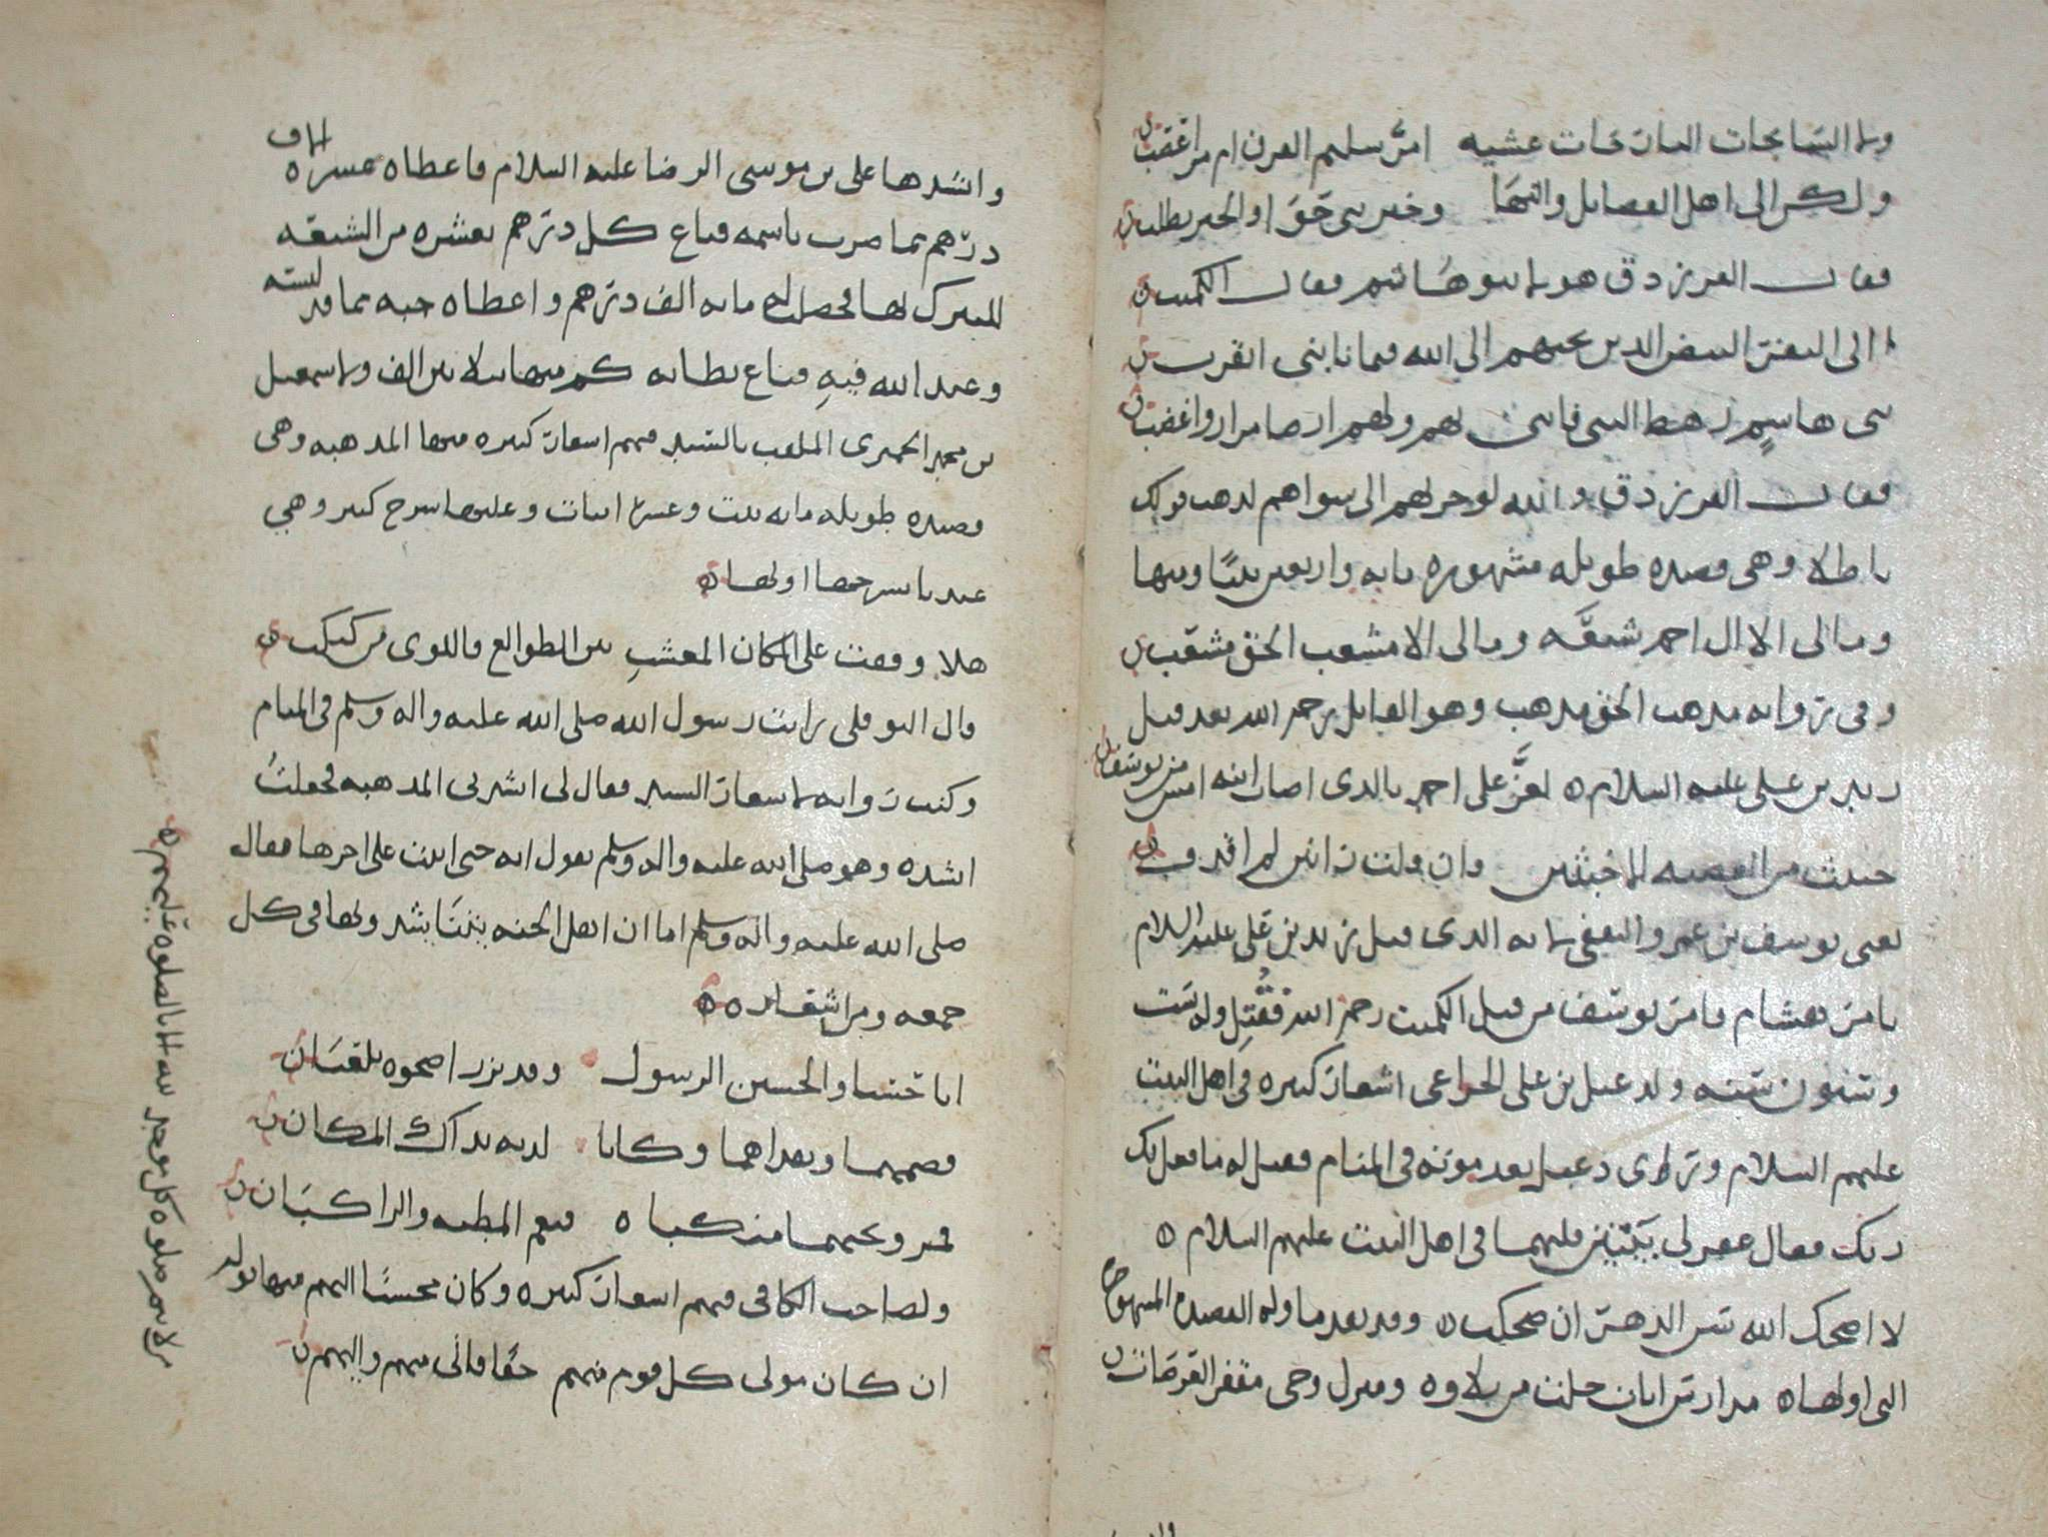 ولا السانحات البارحات عشيه امر سليم القرن ام مر اعضب
ولكن الى اهل الفضايل والنهى وخير بني حوا والخير يطلب
فقال الفرزدق هولا بنو هاشم فقال الكميت
الى النفر البيض الذين بحبهم الى الله فيما نابني اتقرب
بني هاشم رهط النبي فانني بهم ولهم ارضا مرارا واغضب
فقال الفرزدق والله لو جزتهم الى سواهم لذهب قولك
باطلا وهي قصيده طويله مشهوره مايه واربعين بيتا ومنها
ومالي الا ال احمد شيعه ومالي الا مشعب الحق مشعب
وفي روايه مذهب الحق مذهب وهو القايل يرحمه الله بعد قتل
زيد بن علي عليه السلام يعز على احمد بالذي اصاب ابنه امس من يوسف
خبيث من العصبه الاخبثين وان قلت زانين لم اقذف
يعني يوسف بن عمرو الثقفي لانه الذي قتل زيد بن علي عليه السلام
بامر هشام يامر يوسف من قتل الكميت رحمه الله فقتل وله ست
وستون سنه ولدعبل بن علي الخزاعي اشعار كثيره في اهل البيت
عليهم السلام وروي دعبل بعد موته في المنام فقيل له ما فعل بك
ربك فقال غفر لي ببيتين قلتهما في اهل البيت عليهم السلام
لا اضحك الله سن الدهر ان ضحكت وقد تقدما وله القصيده المشهوره
التي اولها مدارس ايات خلت من تلاوه ومنزل وحي مقفر العرصات
وانشدها علي بن موسى الرضا عليه السلام فاعطاه عشره الاف
درهم مما ضرب باسمه فباع كل درهم بعشره من الشيعه
للتبرك لها فحصل له مايه الف درهم واعطاه جبه مما قد لبسه
وعبد الله فيه فباع بطانه كم منها بثلاثين الف ولاسمعيل
بن محمد الحميري الملقب بالسيد فيهم اشعار كثيره منها المذهبه وهي
قصيده طويله مايه بيت وعشره ابيات وعليها شرح كبير وهي
عندنا بشرحها اولها
هلا وقفت على المكان المعشب بين الطوالع فاللوى من كبكب
قال النوفلي رايت رسول الله صلى الله عليه واله وسلم في المنام
وكنت روايه لاشعار السيد فقال لي انشدني المذهبه فجعلت
انشده وهو صلى الله عليه واله وسلم يقول ايه حتى اتيت على اخرها فقال
صلى الله عليه واله وسلم اما ان اهل الجنه ينشدونها في كل
جمعه ومن اشعاره
اتا حسنا والحسين الرسول وقد برزا ضحوه يلعبان
فضمهما وفداهما وكانا لديه بذاك المكان
فمر وتحتهما منكباه فنعم المطيه والراكبان
ولصاحب الكافي فيهم اشعار كثيره وكان محسنا اليهم فيها قوله
ان كان مولى كل قوم منهم حقا فاني منهم واليهم
من لا يتم صلوه كل موحد لله الا بالصلوه عليهم